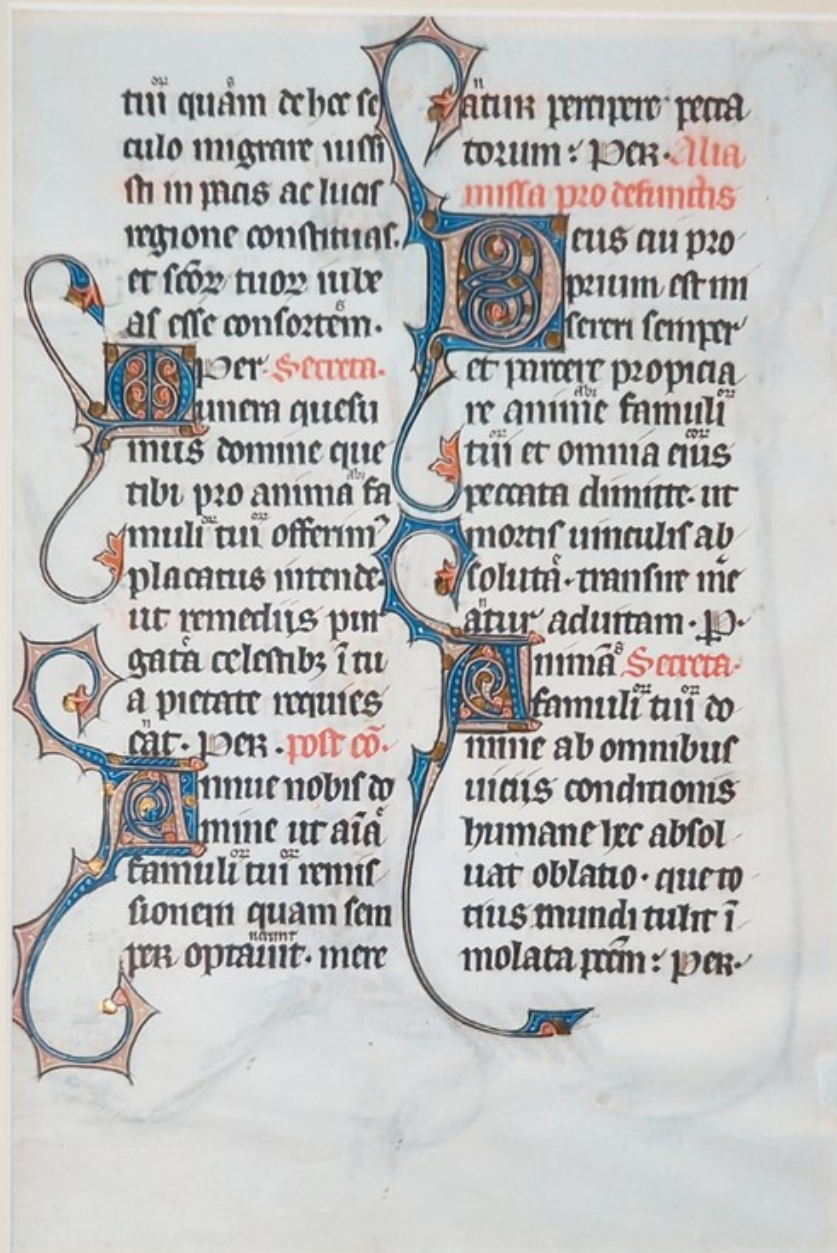 tui quam de hoc se
culo migrare iussi
sti in pacis ac lucis
regione constituas.
et scōꝝ tuoꝝ iube
as esse consortem.
Per. Secreta.
Munera quesu
mus domine que
tibi pro anima fa
muli tui offerimꝰ
placatus intende.
ut remediis pur
gata celestibꝫ ī tu
a pietate requies
cāt. Per. post cō.
Annue nobis do
mine ut aīa
famuli tui remis
sionem quam sem
per optauit. mere
atur percipere pecca
torum: Per. Alia
missa pro defunctis
Deus cui pro
prium est mi
sereri semper
et parcere propicia
re anime famuli
tui et omnia eius
peccata dimitte. ut
mortis uinculis ab
soluta. transire me
atur ad uitam. P.
Animā Secreta.
famuli tui do
mine ab omnibus
uiciis conditionis
humane hec absol
uat oblatio. que to
tius mundi tulit ī
molata pccm: Per.